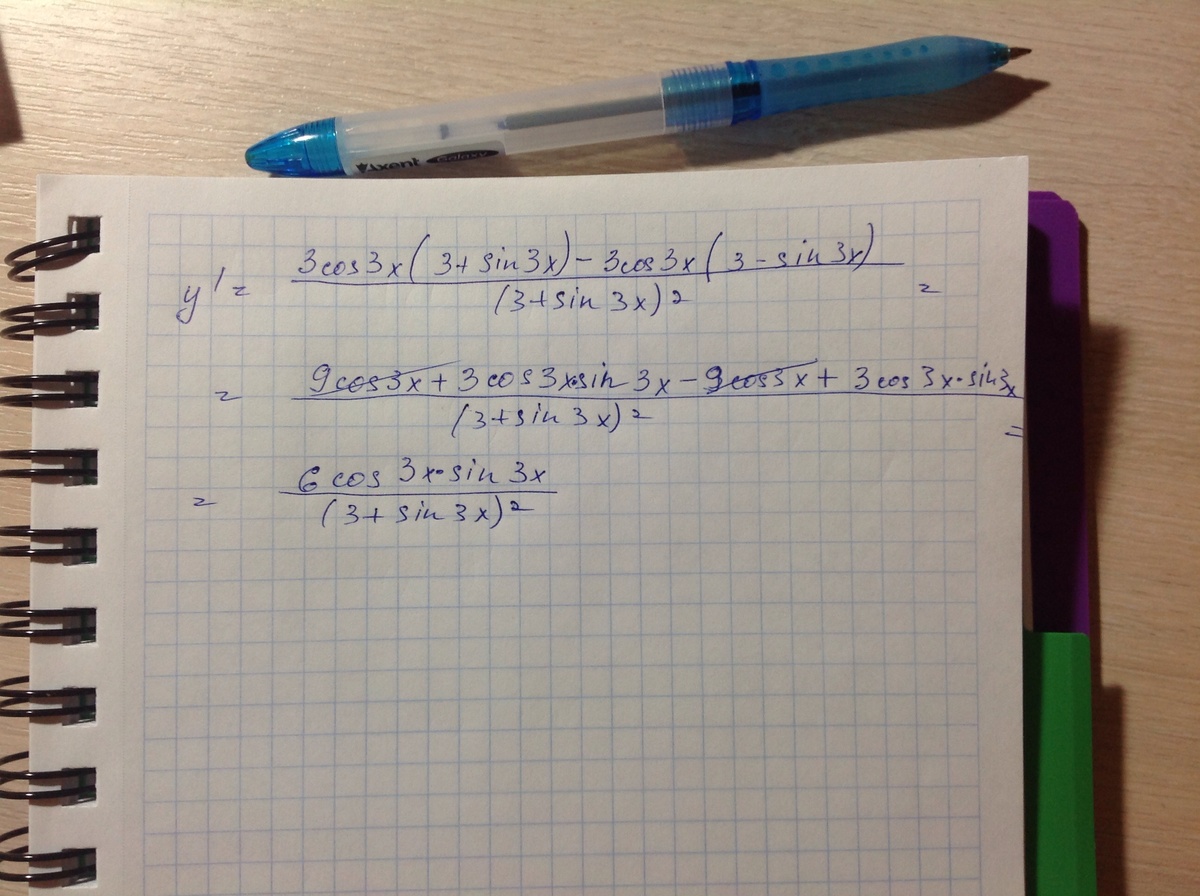 Axent Galaxy
y' = (3cos3x(3+sin3x)-3cos3x(3-sin3x))/((3+sin3x)²) =
= (9cos3x+3cos3x·sin3x-9cos3x+3cos3x·sin3x)/((3+sin3x)²) =
= (6cos3x·sin3x)/((3+sin3x)²)